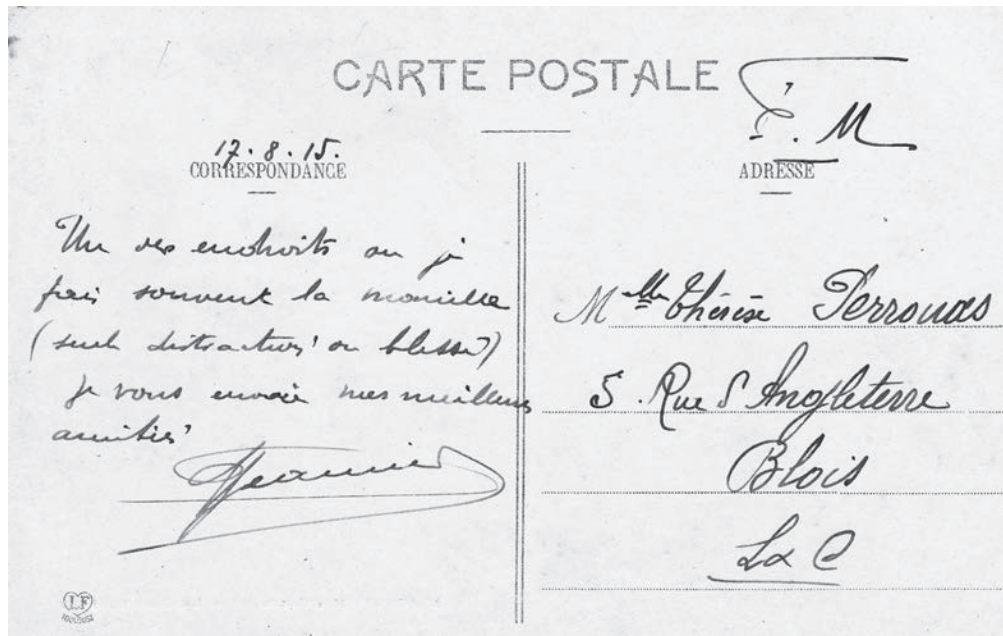 CARTE POSTALE
F. M
17.8.15.
CORRESPONDANCE
Un des endroits ou je
fais souvent la manille
(seule distraction
je vous envoie mes meilleures
amitiés
ADRESSE
Melle Thérèse Perrouas
5. Rue d'Angleterre
Blois
L&C
LF
TOULOUSE